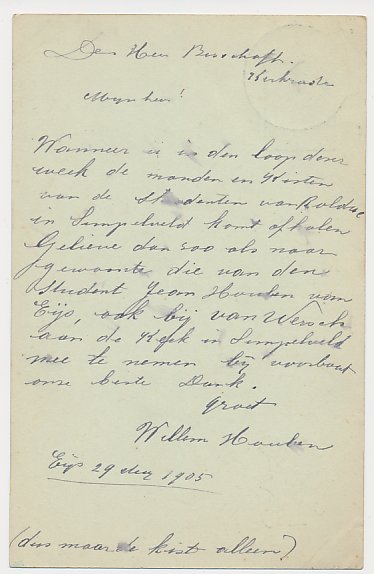 Den Heer Bisschoff.
Kerkrade
Mijnheer!
Wanneer u in den loop dezer
week de manden en Kisten
van de studenten van Rolduc
in Simpelveld komt afhalen
Gelieve dan zoo als naar
gewoonte die van den
Student Jean Houben van
Eijs, ook bij van Wersch
aan de Kerk in Simpelveld
mee te nemen bij voorbaat
onze beste Dank.
Groet
Willem Houben
Eijs 29 1905
(dus maar de kist alleen)